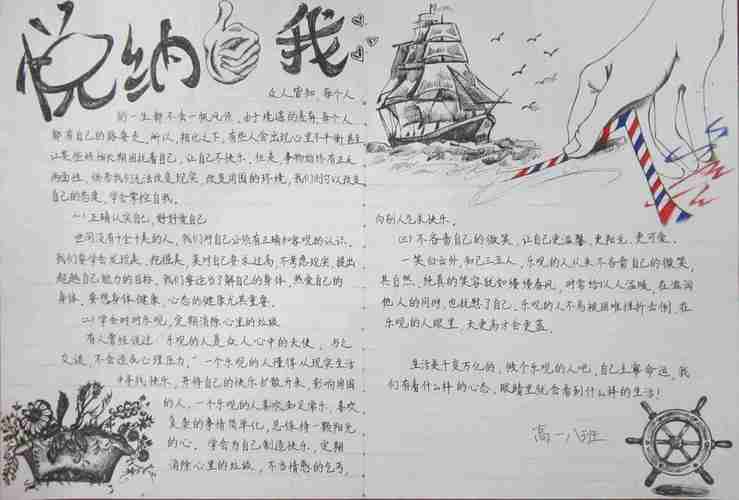 悦纳自我
众人皆知,每个人
的一生都不会一帆风顺。由于境遇的差异,每个人
都有自己的路要走。所以,相比之下,有些人会出现心里不平衡,甚至
让某些烦恼长期困扰着自己,让自己不快乐。但是,事物始终有正反
两面性,倘若我们无法改变现实,改变周围的环境,我们则可以改变
自己的态度,学会掌控自我。
(一)正确认识自己,好好爱自己
世间没有十全十美的人,我们对自己必须有正确和客观的认识。
我们要学会发现美,挖掘美,莫对自己要求过高,不考虑现实,提出
超越自己能力的目标。我们要适当了解自己的身体,热爱自己的
身体。要想身体健康,心态的健康尤其重要。
(二)学会时时乐观,定期消除心里的垃圾
有人曾经说过“乐观的人是众人心中的天使,与之
交谈,不会造成心理压力。”一个乐观的人懂得从现实生活
中寻找快乐,并将自己的快乐扩散开来,影响周围
的人。一个乐观的人喜欢知足常乐,喜欢
复杂的事情简单化,总保持一颗阳光
的心。学会为自己制造快乐,定期
消除心里的垃圾,不当情感的乞丐,
向别人乞求快乐。
(三)不吝啬自己的微笑,让自己更温馨,更阳光,更可爱。
一笑泊云外,知己三五人,乐观的人从来不吝啬自己的微笑,
其自然、纯真的笑容犹如缕缕春风,时常给以人温暖,在滋润
他人的同时,也抚慰了自己。乐观的人不易被困难挫折击倒,在
乐观的人眼里,天更高才会更蓝。
生活是千变万化的,做个乐观的人吧,自己主宰命运,我
们有着什么样的心态,眼睛里就会看到什么样的生活!
高一八班